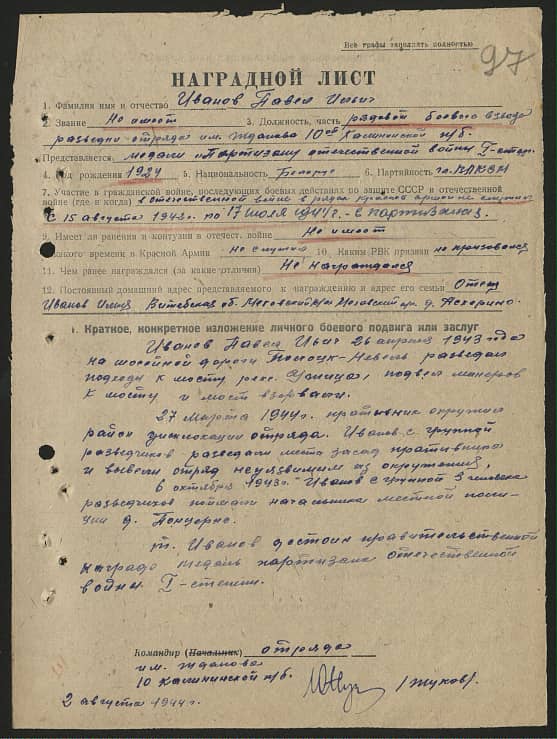 Все графы заполнять полностью
97
НАГРАДНОЙ ЛИСТ
1. Фамилия имя и отчество Иванов Павел Ильич
2. Звание Не имеет 3. Должность, часть рядовой боевого взвода
разведки отряда им. Жданова 10ой Калининской п/б.
Представляется медали „Партизану отечественной войны" I-степ.
4. Год рождения 1924 5. Национальность Белорус 6. Партийность чл. ВЛКСМ
7. Участие в гражданской войне, последующих боевых действиях по защите СССР и отечественной
войне (где и когда) в отечественной войне в рядах красной армии не служил
с 15 августа 1943г. по 17 июля 1944г. - в партизанах.
9. Имеет ли ранения и контузии в отечест. войне Не имеет
какого времени в Красной Армии не служил 10. Каким РВК призван не призовался
11. Чем ранее награждался (за какие отличия) Не награждался
12. Постоянный домашний адрес представляемого к награждению и адрес его семьи Отец
Иванов Витебская об.
1. Краткое, конкретное изложение личного боевого подвига или заслуг
Иванов Павел Ильич 26 апреля 1943 года
на шоссейной дороги Полоцк-Невель разведал
подходы к мосту реки, подвел минеров
к мосту и мост взорвали.
27 марта 1944г. противник окружил
район дислокации отряда. Иванов с группой
разведчиков разведали места засад противника
и вывели отряд неуязвимым из окружения,
в октября 1943г. Иванов с группой 3 человека
разведчиков поймали начальника местной поли-
ции д.
т. Иванов достоин правительственной
награды медаль партизана отечественной
войны I-степени.
Командир (Начальник) отряда
им. Жданова
10 Калининской п/б.
/Жуков/.
2 августа 1944г.